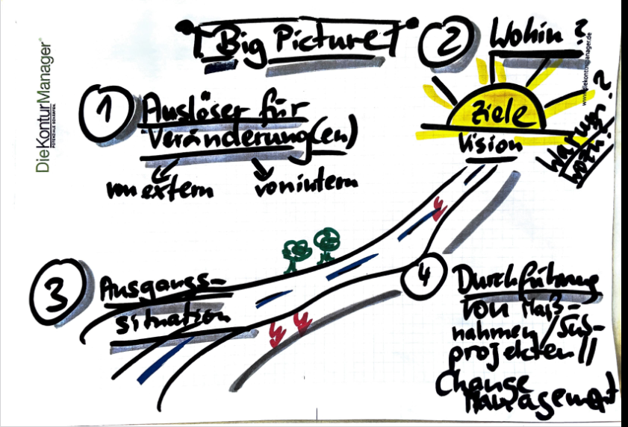 Big Picture
② Wohin?
Ziele
Vision
Warum?
Wozu?
① Auslöser für
Veränderung(en)
von extern
von intern
③ Ausgangs-
situation
④ Durchführung
von Maß-
nahmen/
projekten//
Change
Management
DieKonturManager®
www.diekonturmanager.de